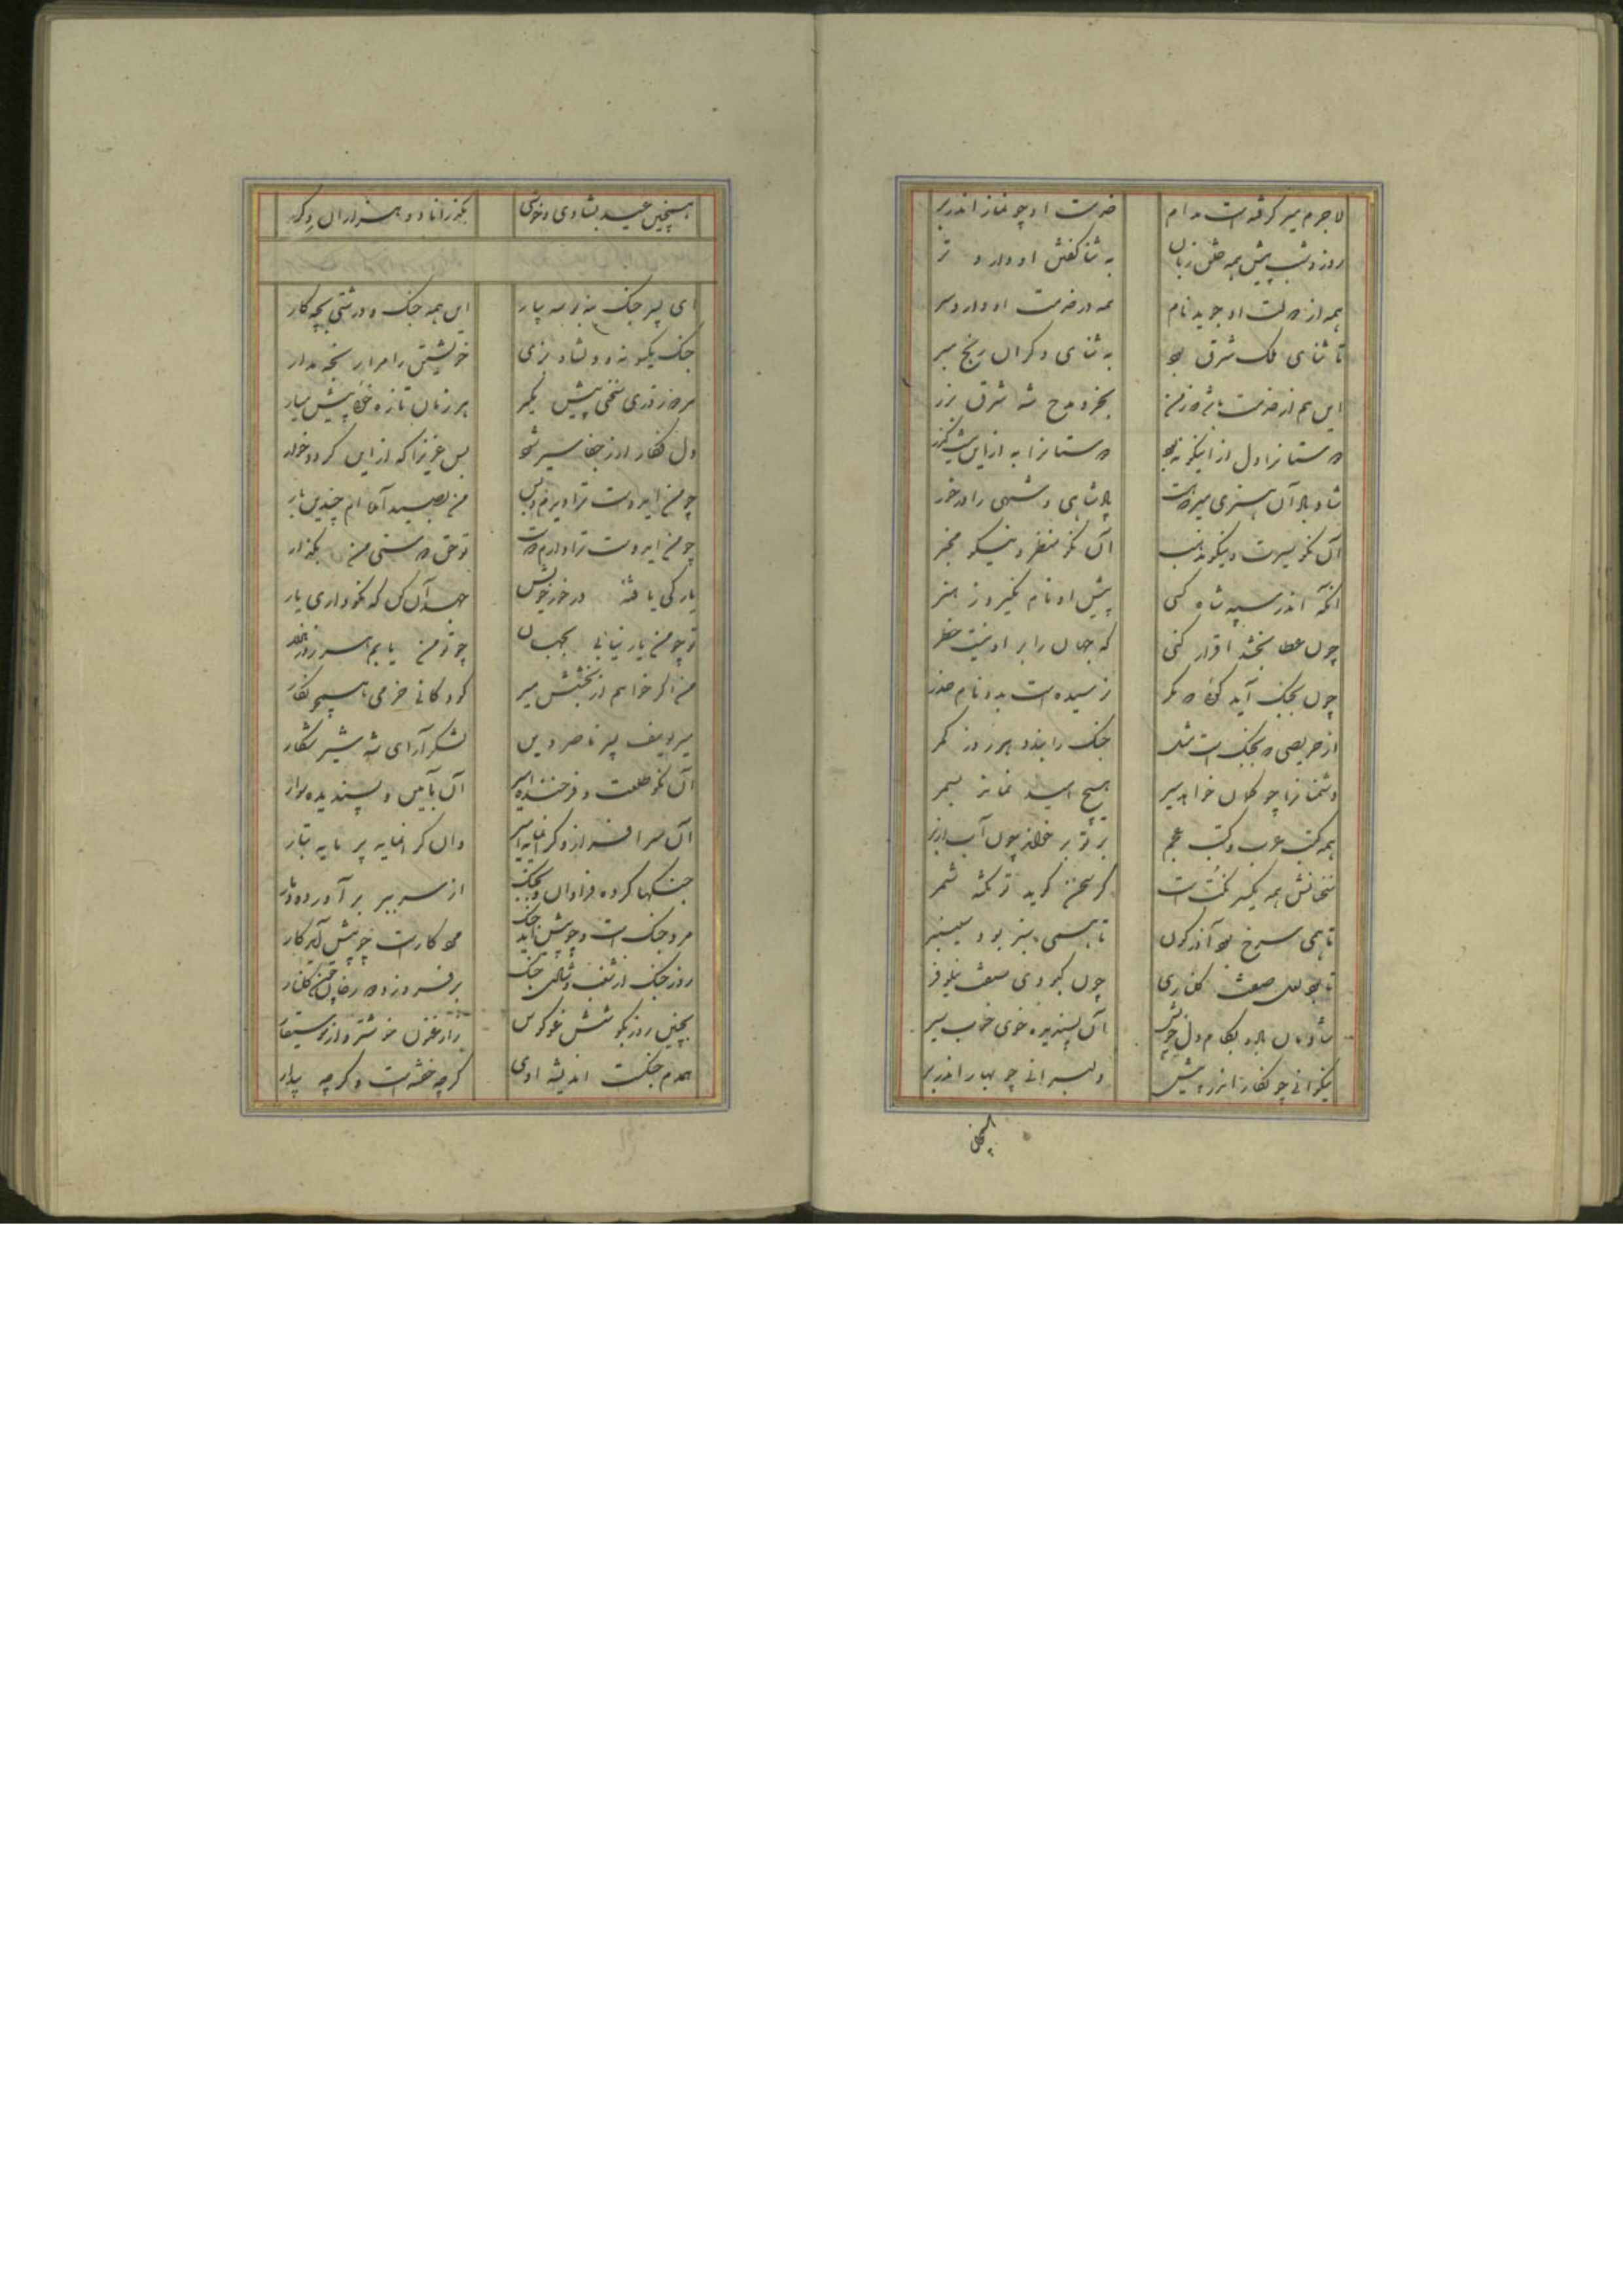 لاجرم میر گرفته است مدام خدمت او چو نماز اندر بر
روز و شب پیش همه خلق زبان به ثنا گفتن او دارد تر
همه از دولت او جوید نام همه در خدمت او دارد سر
تا ثنای ملک شرق بود به ثنای دگران رنج مبر
این هم از خدمت باشد که ز من بخرد مدح شه شرق بزر
دوستانرا دل از اینگونه بود دوستانرا به ازاین نیست گذر
شاد باد آن هنری میر که هست پادشاهی و شهی را در خور
آن نکو سیرت و نیکو مذهب آن نکو منظر و نیکو مخبر
آنکه اندر سپه شاه کسی پیش او نام نگیرد ز هنر
چون عطا بخشد اقرار کنی که جهان را بر او نیست خطر
چون بجنگ آید گویی که مگر نرسیده است بدو نام حذر
از حریصی که بجنگ است مثل جنگ را بندد هر روز کمر
دشمنانرا چو کمان خواهد میر هیچ امید نماند بسپر
همه کتب عرب و کتب عجم بر تو بر خواند چون آب از بر
سخنانش همه یکسر نکتست گر سخن گوید تو نکته شمر
تا همی سرخ بود آذرگون تا همی سبز بود سیسنبر
تا بود لعل صفت گلناری چون کبودی صفت نیلوفر
شادمان باد و بکام دل خویش آن پسندیده خوی خوب سیر
نیکوانی چو نگار اندر پیش دلبرانی چو بهار اندر بر
همچنین
همچنین عید بشادی و خوشی بگذراناد و هزاران دگر
ای پسر جنگ بنه بوسه بیار این همه جنگ و درشتی بچه کار
جنگ یکسو نه و دلشاد بزی خویشتن را مرا رنجه مدار
هر زمان تازه خویی پیش میار
دل نگار از جفا سیر شود بس عزیزا که ازاین گردد خوار
چو من ایدوست ترا دیرم و بس من بصید آمده‌ام چندین بار
چو من ایدوست ترا دارم دوست تو حق دوستی من بگذار
یارکی یافته در خور خویش جهد آن کن که نکو داری یار
تو چو من یار نیابی بجهان چو تو من یابم هر روز هزار
من اگر خواهم از بخشش میر کودکانی خرم همچو نگار
میر یوسف پسر ناصر دین لشکر آرای شه شیر شکار
آن نکو طلعت و فرخنده امیر آن بآیین و پسندیده سوار
آن سرافراز و گرانمایه امیر وان گرانمایه پر مایه تبار
جنگها کرده فراوان و بجنگ از سر ببر برآورده دمار
مرد جنگ است و چو پیش آید جنگ مرد کار است چو پیش آید کار
روز جنگ از شغب و شادی جنگ برفروزد دو رخان چون گلنار
بچنین روز بگوشش غو کوس ز ارغنون خوشتر و از موسیقار
همدم جنگست اندیشه اوی گرچه خفته است و گرچه بیدار